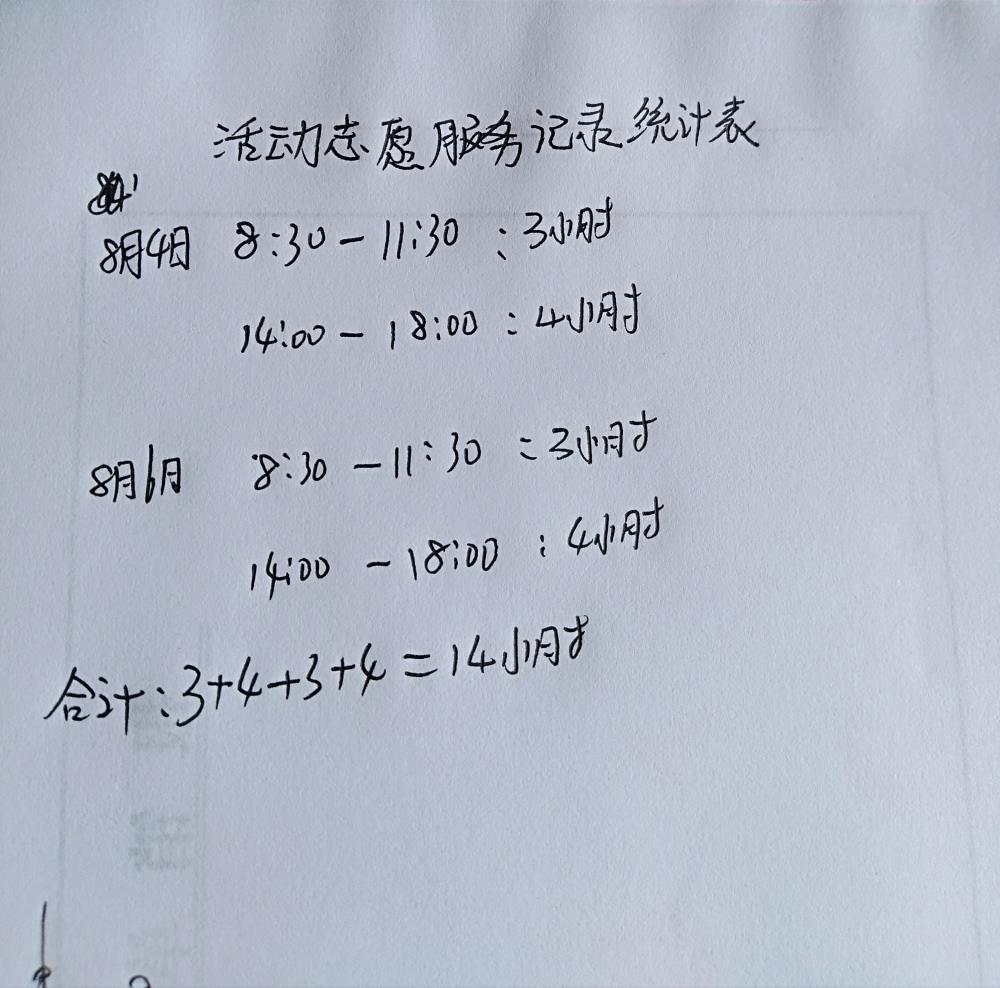 活动志愿服务记录统计表
8月4日 8:30-11:30 :3小时
14:00-18:00 :4小时
8月6月 8:30-11:30 :3小时
14:00-18:00 :4小时
合计:3+4+3+4=14小时